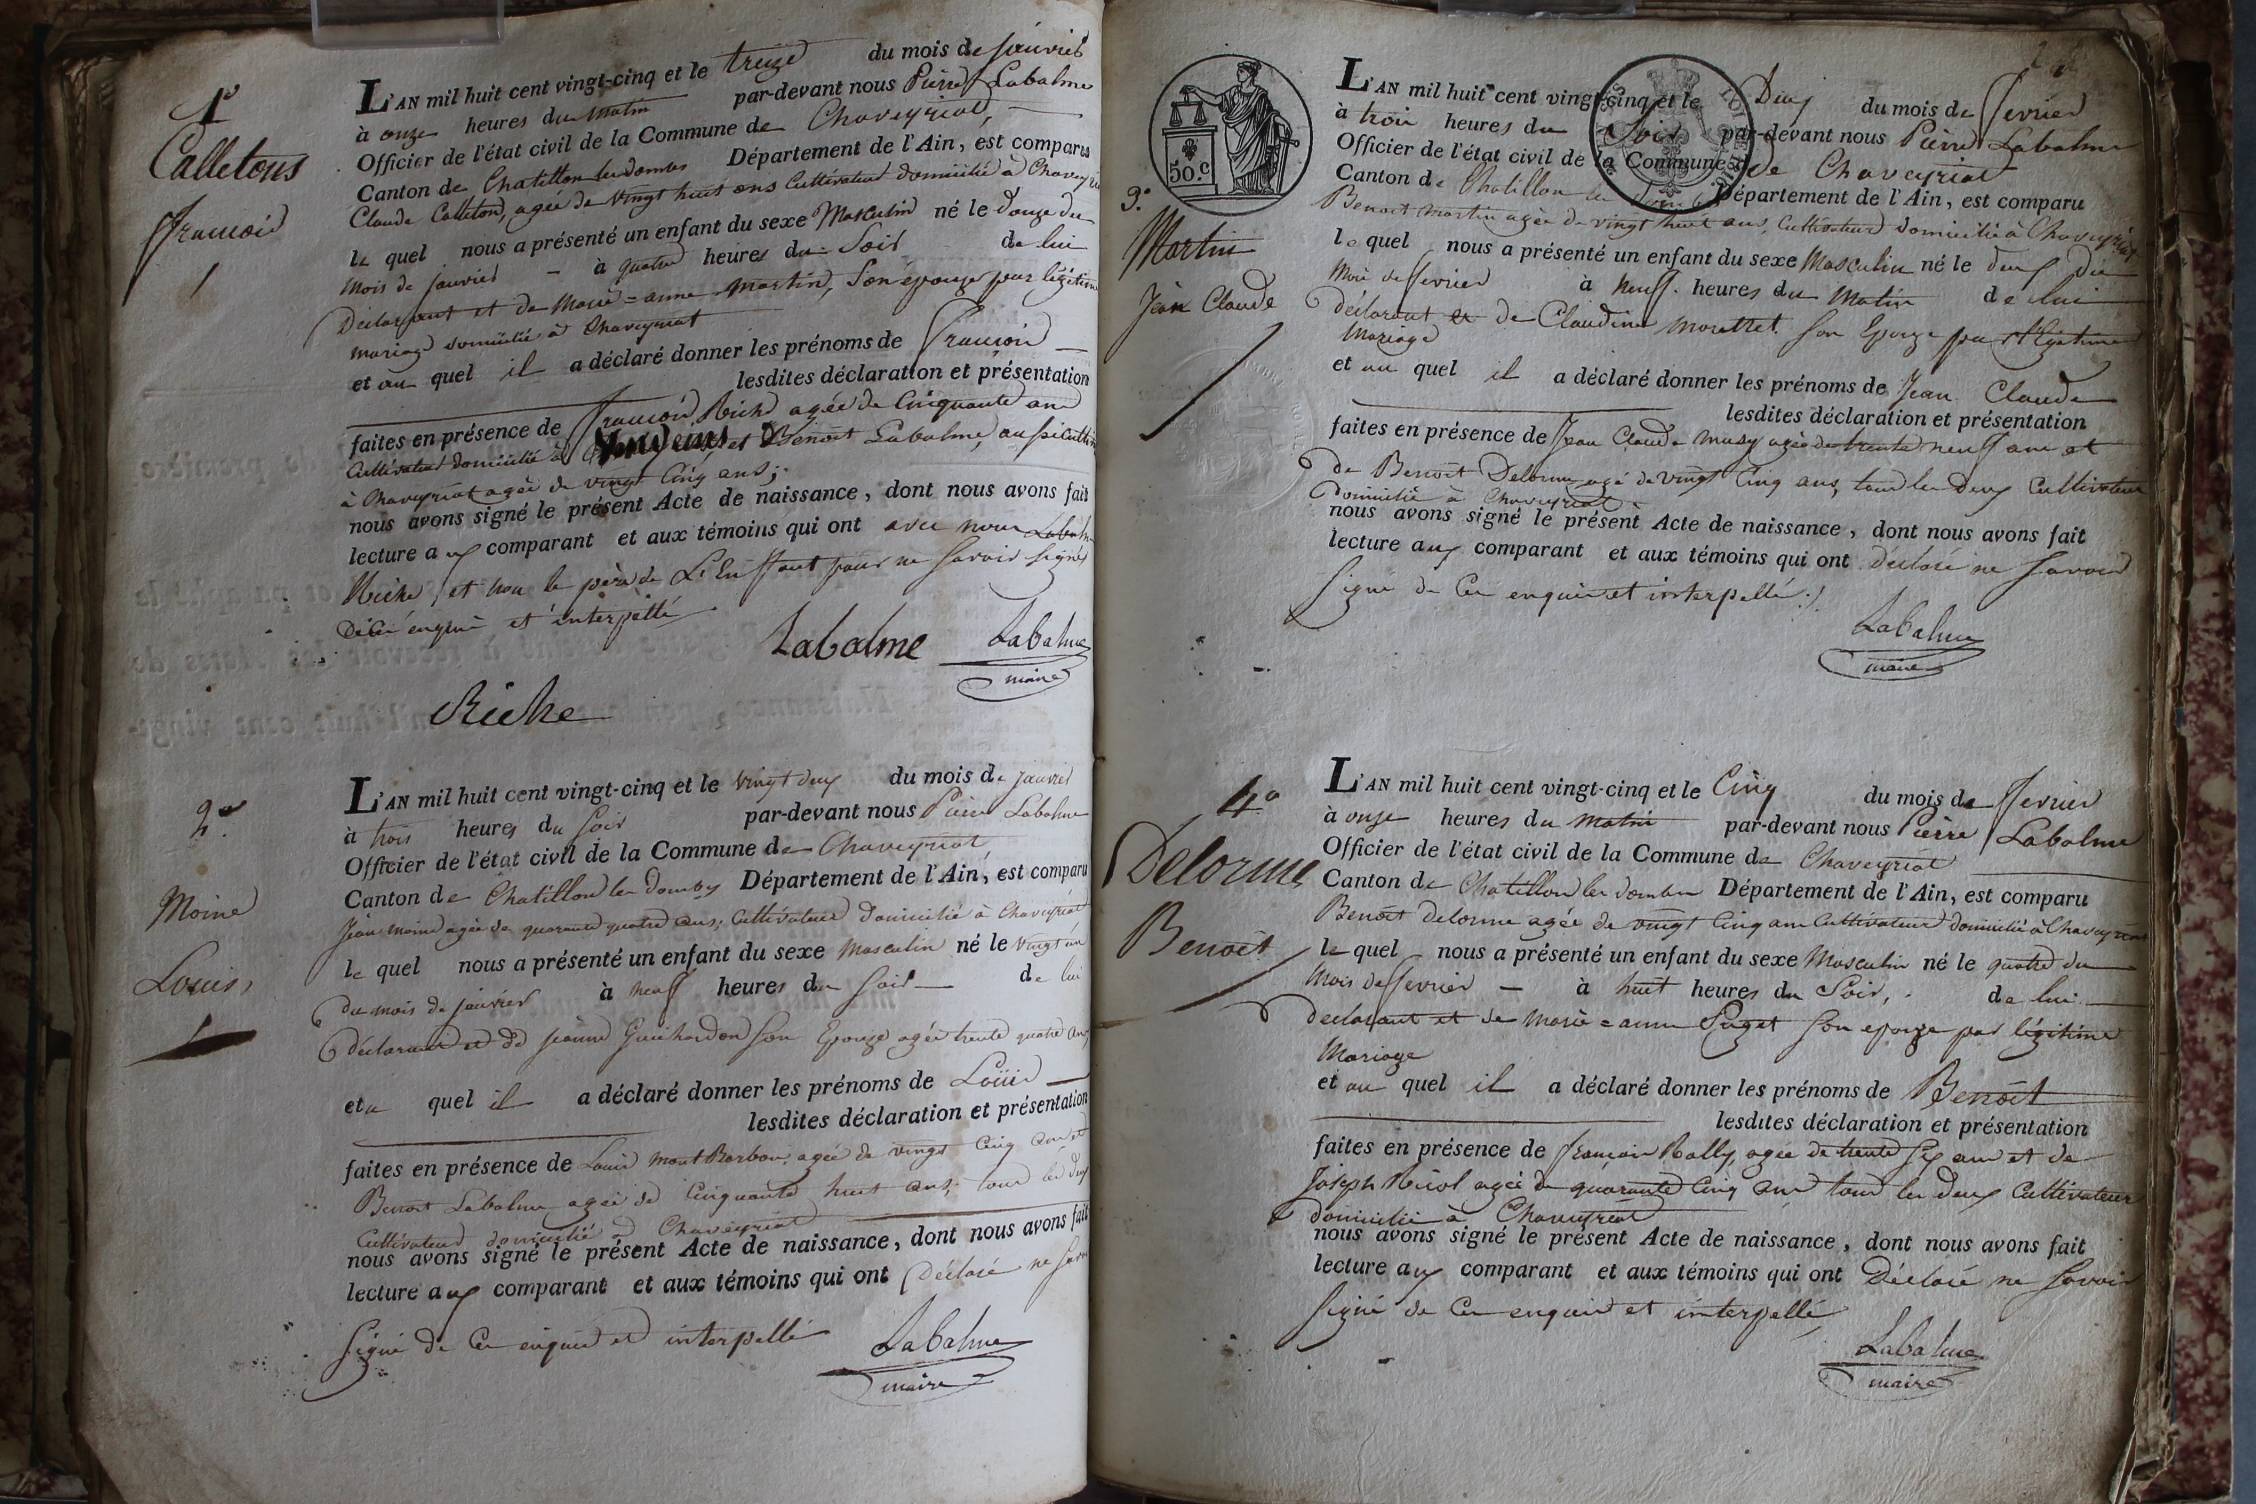 1º
Calletons
François
L'AN mil huit cent vingt-cinq et le treize du mois de janvier
à onze heures du matin par-devant nous Pierre Labalme
Officier de l'état civil de la Commune de Chaveyriat,
Canton de Chatillon les dombes Département de l'Ain, est comparu
Claude Calleton, agée de vingt huit ans Cultivateur domicilié à Chaveyriat
le quel nous a présenté un enfant du sexe Masculin né le douze du
mois de janvier à quatre heures du Soir de lui
Déclarant et de Marie = anne Martin, Son épouze par légitime
mariage domicilié à Chaveyriat
et au quel il a déclaré donner les prénoms de François
lesdites déclaration et présentation
faites en présence de François Riche agée de Cinquante ans
Cultivateur domicilié à et Benoit Labalme, aussi Cultiv
à Chaveyriat agée de vingt Cinq ans;
nous avons signé le présent Acte de naissance, dont nous avons fait
lecture aux comparant et aux témoins qui ont avec nous Labalme
Riche, et non le père de L'Enffant pour ne Savoir Signer
De ce enquis et interpellé
Labalme Labalme
maire
Riche
2º
Moine
Louis,
L'AN mil huit cent vingt-cinq et le vingt deux du mois de janvier
à trois heures du Soir par-devant nous Pierre Labalme
Officier de l'état civil de la Commune de Chaveyriat
Canton de Chatillon les dombes Département de l'Ain, est comparu
Jean Moine agée de quarante quatre ans, Cultivateur Domicilié à Chaveyriat
le quel nous a présenté un enfant du sexe Masculin né le vingt un
du mois de janvier à neuf heures du Soir de lui
déclarant et de jeanne Guichardon Son Epouze agée trente quatre ans
et a quel il a déclaré donner les prénoms de Loüis
lesdites déclaration et présentation
faites en présence de Louis Mont Barbon agée de vingt Cinq ans et
Benoit Labalme agée de Cinquante huit ans, tous les deux
Cultivateurs domicilié à Chaveyriat
nous avons signé le présent Acte de naissance, dont nous avons fait
lecture aux comparant et aux témoins qui ont Déclaré ne Savoir
Signé de Ce enquis et interpellé
Labalme
maire
50.C
3.º
Martin
Jean Claude
L'AN mil huit cent vingt-cinq et le Deux du mois de fevrier
à trois heures du Soir par-devant nous Pierre Labalme
Officier de l'état civil de la Commune de Chaveyriat
Canton de Chatillon les Département de l'Ain, est comparu
Benoit Martin agée de vingt huit ans, Cultivateur domicilié à Chaveyriat
le quel nous a présenté un enfant du sexe Masculin né le deux du
Mois de fevrier à neuff heures du Matin de lui
déclarant et de Claudine Son Epouze par Légitime
Mariage
et au quel il a déclaré donner les prénoms de Jean Claude
lesdites déclaration et présentation
faites en présence de Jean Claude Musy agée de trente neuff ans et
de Benoit Delorme agé de vingt Cinq ans, tous les deux Cultivateur
Domicilié à Chaveyriat
nous avons signé le présent Acte de naissance, dont nous avons fait
lecture aux comparant et aux témoins qui ont déclaré ne Savoir
Signé de Ce enquis et interpellé
Labalme
maire
4º
Delorme
Benoit
L'AN mil huit cent vingt-cinq et le Cinq du mois de fevrier
à onze heures du matin par-devant nous Pierre Labalme
Officier de l'état civil de la Commune de Chaveyriat
Canton de Chatillon les dombes Département de l'Ain, est comparu
Benoit Delorme agée de vingt Cinq ans Cultivateur domicilié à Chaveyriat
le quel nous a présenté un enfant du sexe Masculin né le quatre du
Mois de fevrier à huit heures du Soir, de lui
déclarant et de Marie = anne Puget Son epouze par légitime
Mariage
et au quel il a déclaré donner les prénoms de Benoit
lesdites déclaration et présentation
faites en présence de François Rolly, agée de trente Six ans et de
Joseph agée de quarante Cinq ans tous les deux Cultivateurs
domicilié à Chaveyriat
nous avons signé le présent Acte de naissance, dont nous avons fait
lecture aux comparant et aux témoins qui ont Déclaré ne Savoir
Signé de Ce enquis et interpellé
Labalme
maire